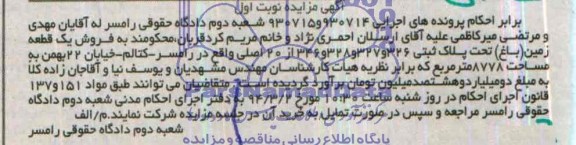 آگهی مزایده نوبت اول
برابر احکام پرونده های اجرایی ۹۳۰۷۱۴و۹۳۰۷۱۵ شعبه دوم دادگاه حقوقی رامسر له آقایان مهدی
و مرتضی میرکاظمی علیه آقای ارسلان احمری نژاد و خانم مریم کردقربان،محکومند به فروش یک قطعه
زمین(باغ) تحت پلاک ثبتی ۳۲۶و۳۲۷و۳۲۸و۳۴۶ از ۲۰ اصلی واقع در رامسر-کتالم-خیابان ۲۲بهمن به
مساحت ۸۷۷۸مترمربع که برابر نظریه هیأت کارشناسان مهندس مشهدیان و یوسف نیا و آقاجان زاده کلا
به مبلغ دومیلیاردوهشتصدمیلیون تومان برآورد گردیده است. متقاضیان می توانند طبق مواد ۱۳۷تا۱۵۱
قانون اجرای احکام در روز شنبه ساعت ۱۰ مورخ ۹۴/۳/۲ به دفتر اجرای احکام مدنی شعبه دوم دادگاه
حقوقی رامسر مراجعه و سپس در صورت تمایل به خرید آن در جلسه مزایده شرکت نمایند.م/الف
شعبه دوم دادگاه حقوقی رامسر
پایگاه اطلاع رسانی مناقصه و مزایده